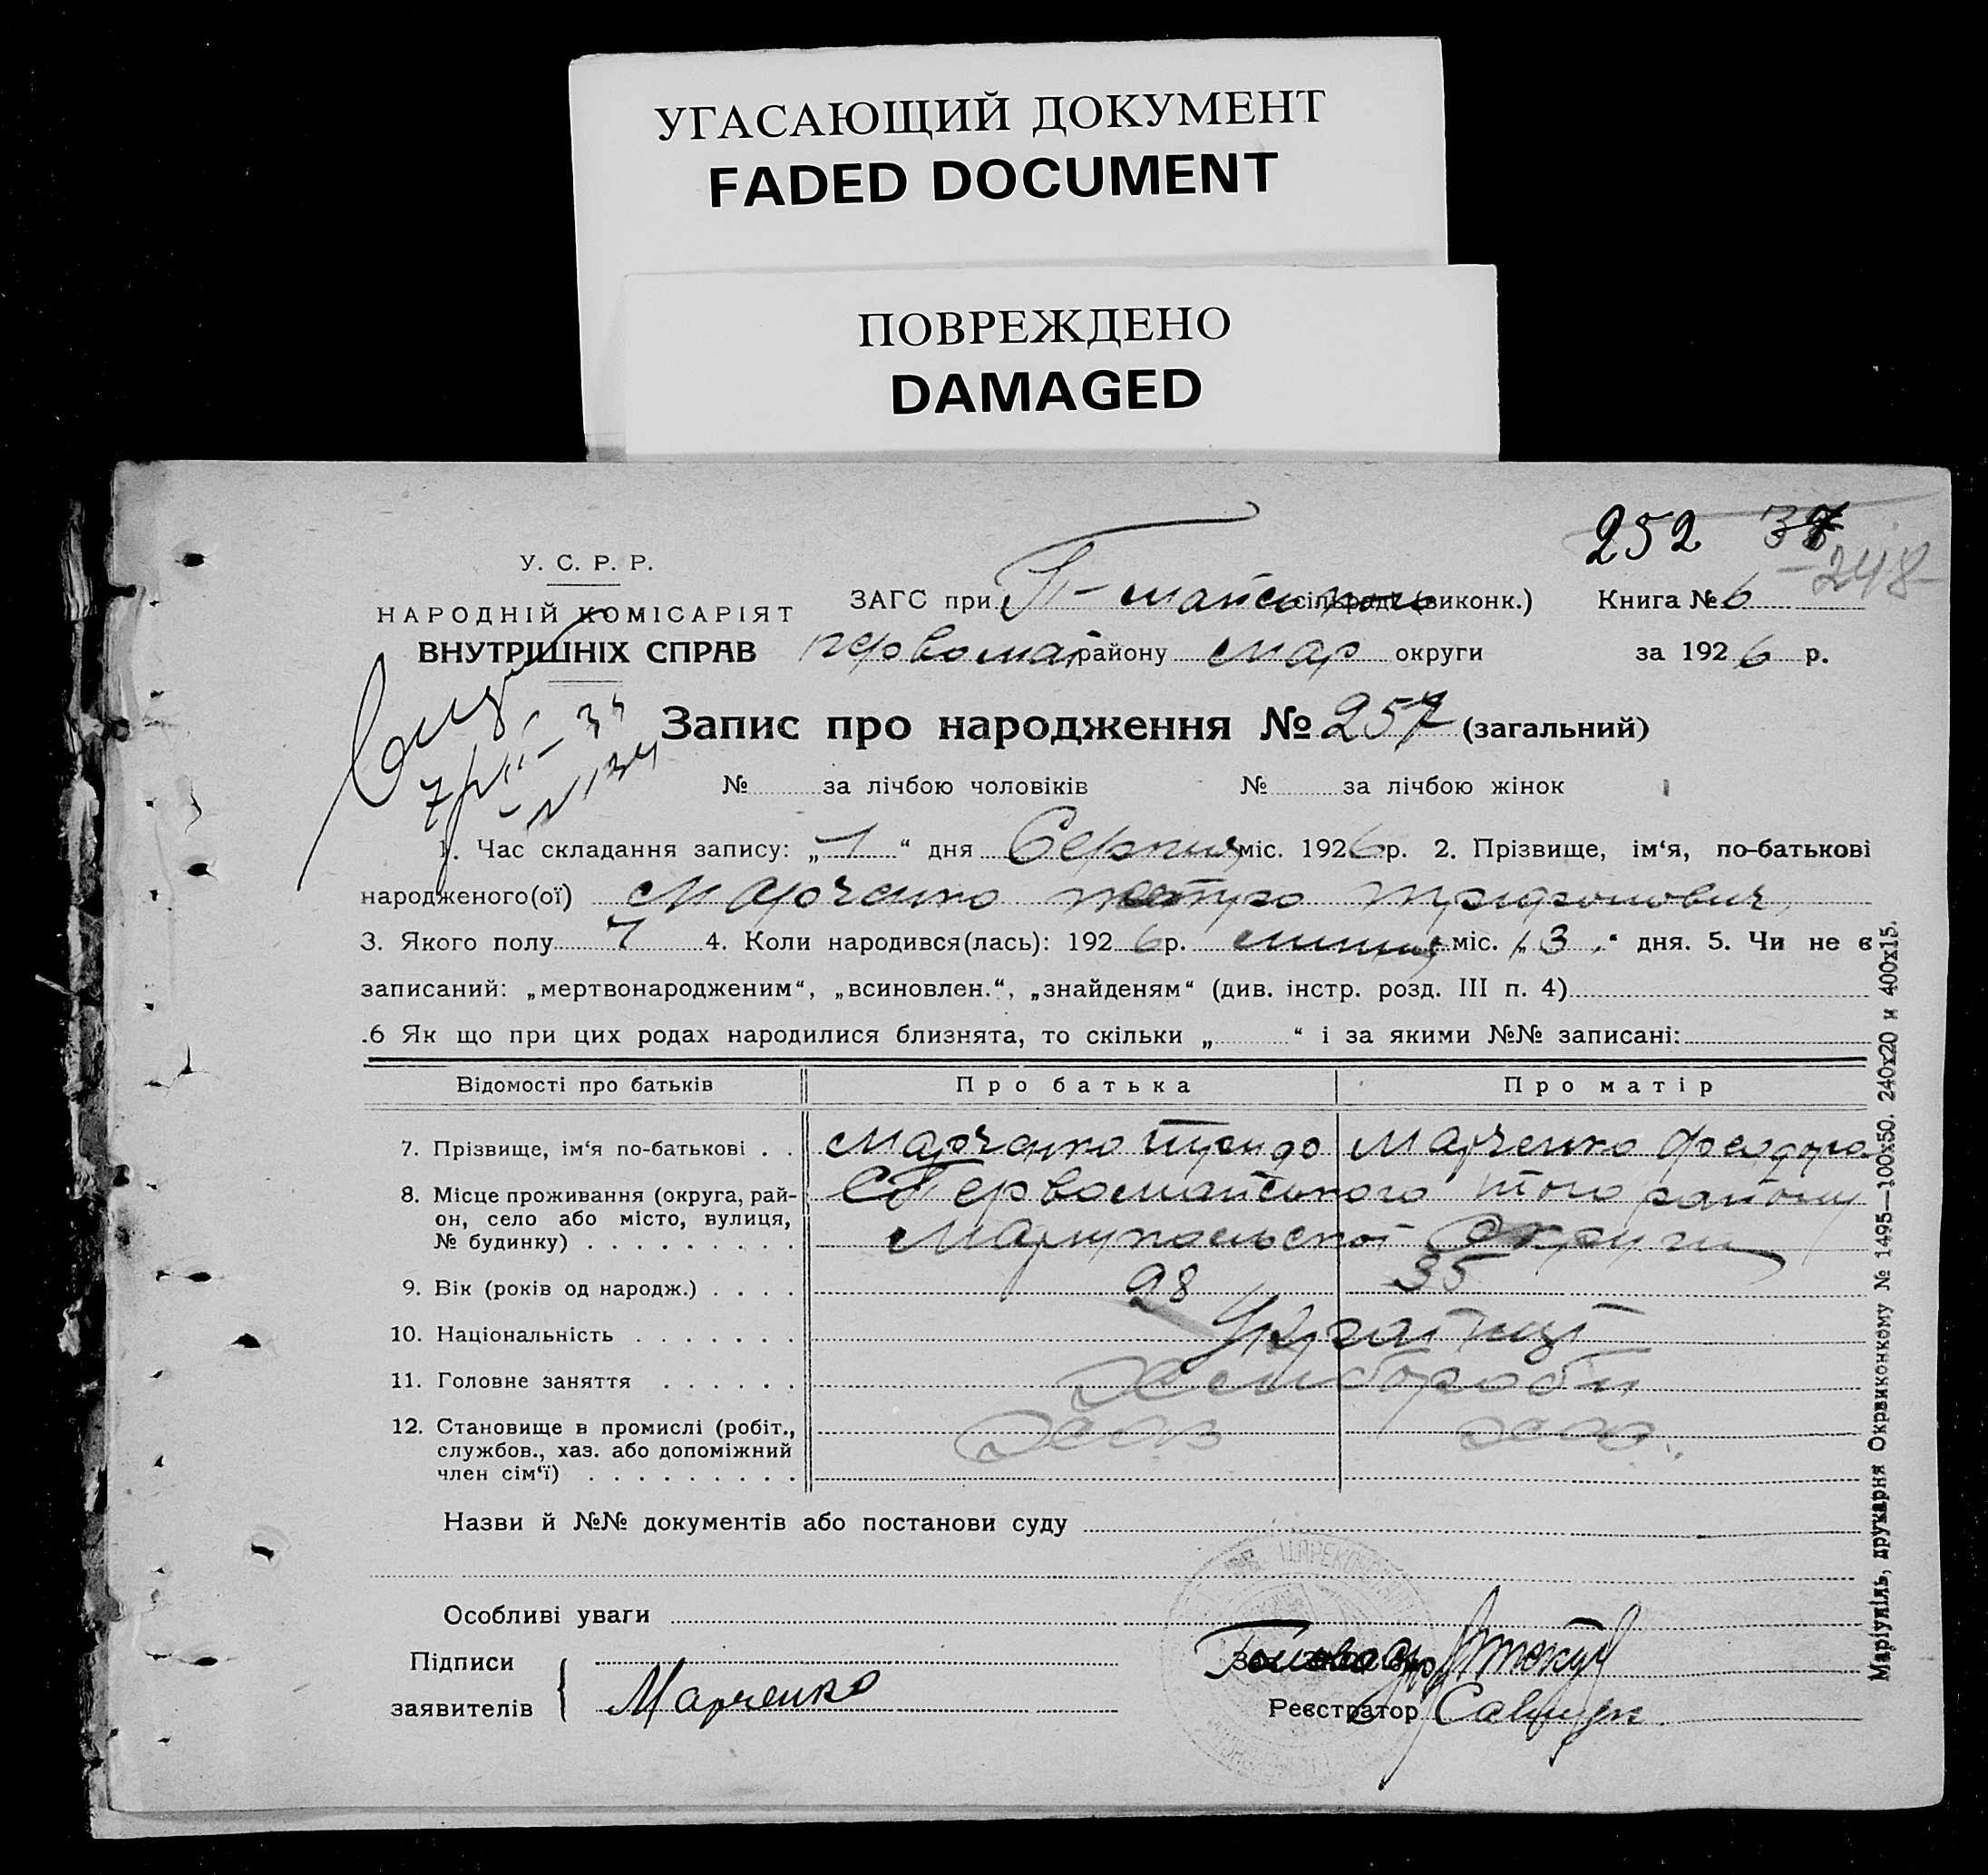 УГАСАЮЩИЙ ДОКУМЕНТ
FADED DOCUMENT
ПОВРЕЖДЕНО
DAMAGED
252 37
-248-
У. С. Р. Р.
НАРОДНІЙ КОМІСАРІЯТ
ВНУТРІШНІХ СПРАВ
ЗАГС при П-майсь сільраді (виконк.) Книга № 6
Первомай району Мар округи за 1926 р.
Запис про народження № 257 (загальний)
№ за лічбою чоловіків № за лічбою жінок
1. Час складання запису: „1“ дня Серпня міс. 1926 р. 2. Прізвище, ім‘я, по-батькові
народженого(ої) Марченко Петро Трифонович
3. Якого полу Ч 4. Коли народився(лась): 1926 р. липня міс. „13“ дня. 5. Чи не є
записаний: „мертвонародженим“, „всиновлен.“, „знайденям“ (див. інстр. розд. III п. 4)
.6 Як що при цих родах народилися близнята, то скільки „ “ і за якими №№ записані:
Відомості про батьків Про батька Про матір
7. Прізвище, ім‘я по-батькові . . Марченко Марченко Феодора
8. Місце проживання (округа, рай-
он, село або місто, вулиця,
№ будинку) . . . . . . . . .
Первомайського того району
Маріупольської Округи
9. Вік (років од народж.) . . . . 28 35
10. Національність . . . . . . . Українці
11. Головне заняття . . . . . . Хлибороби
12. Становище в промислі (робіт.,
службов., хаз. або допоміжний
член сім‘ї) . . . . . . . . .
Назви й №№ документів або постанови суду
Особливі уваги
Підписи
заявителів
Марченко
Голова
Реєстратор
Маріупіль, друкарня Окрвиконкому № 1495—100х50. 240х20 и 400х15.